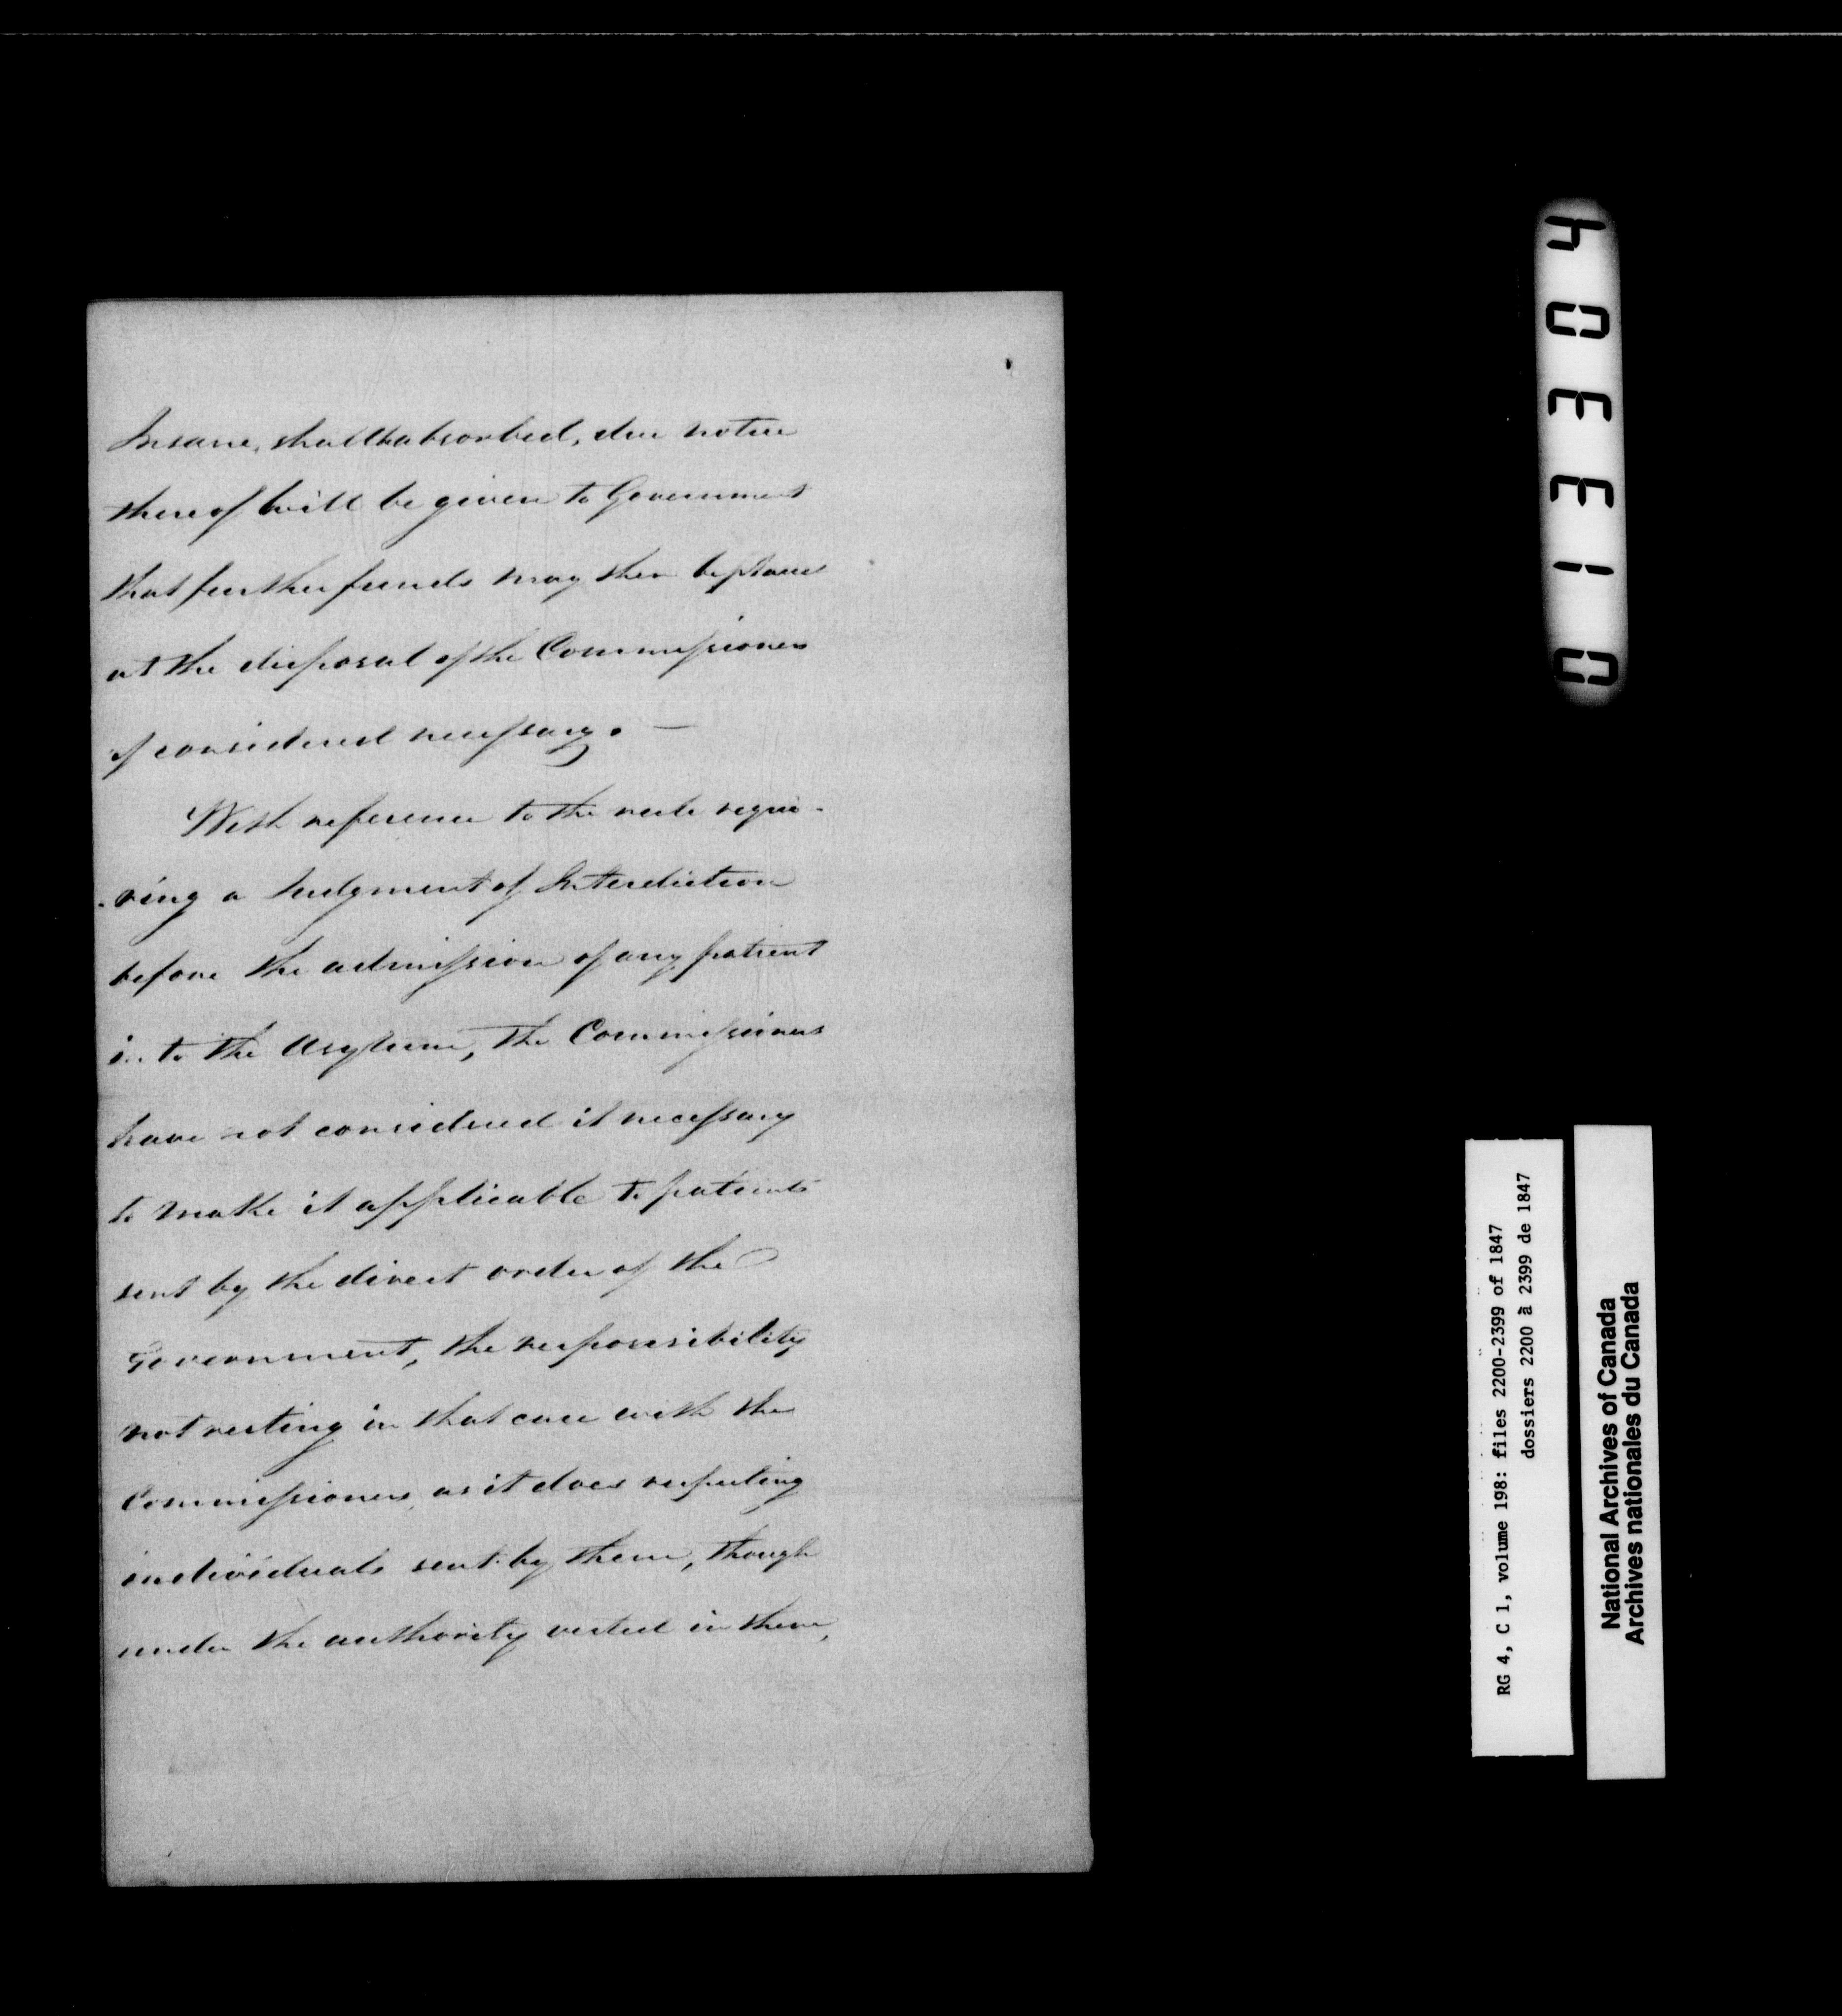 Insane, shall be absorbed, due notice
thereof will be given to Government
that further funds may then be placed
at the disposal of the Commissioners
if considered necessary. —
With reference to the rule requi-
-ring a Judgment of Interdiction
before the admission of any patient
into the Asylum, the Commissioners
have not considered it necessary
to make it applicable to patients
sent by the direct order of the
Government, the responsibility
not resting in that case with the
Commissioners, as it does respecting
individuals sent by them, though
under the authority vested in them,
013304
RG 4, C 1, volume 198: files 2200-2399 of 1847
dossiers 2200 à 2399 de 1847
National Archives of Canada
Archives nationales du Canada